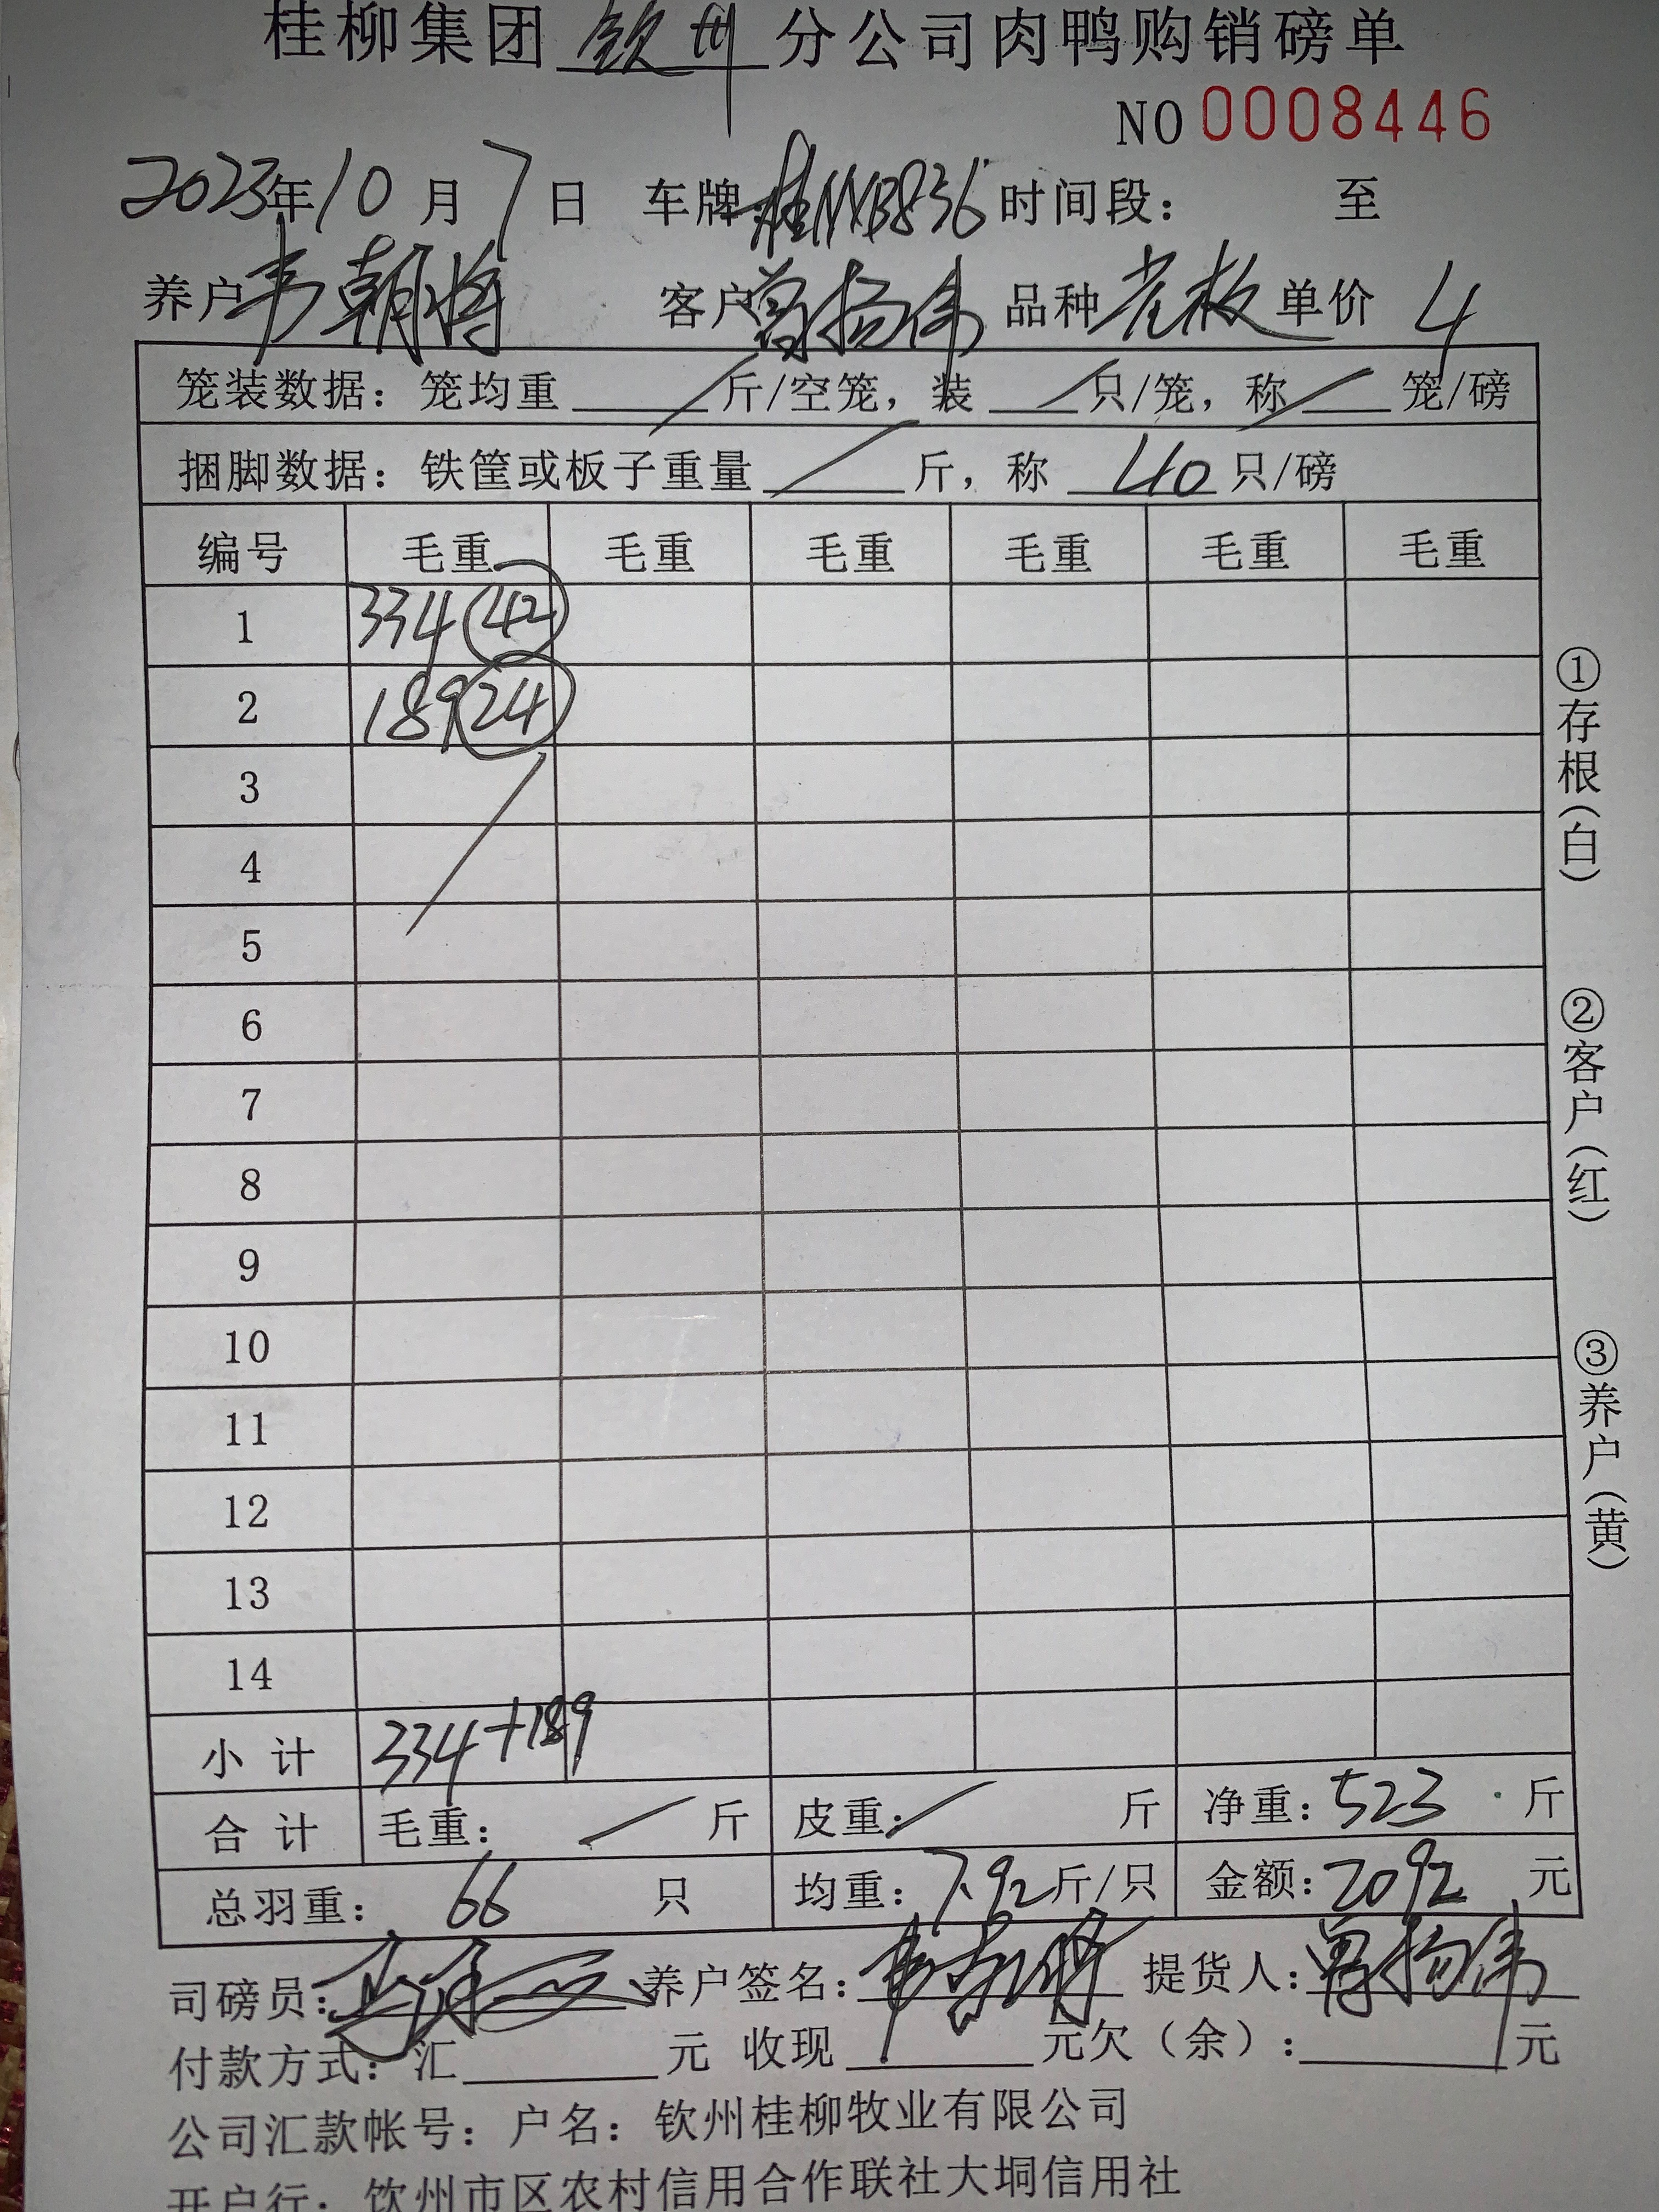 桂柳集团 钦州 分公司肉鸭购销磅单
NO 0008446
2023年10月7日 车牌: 时间段: 至
养户 韦朝将 客户 曾扬伟 品种 老板 单价 4
笼装数据: 笼均重 / 斤/空笼, 装 / 只/笼, 称 / 笼/磅
捆脚数据: 铁筐或板子重量 / 斤, 称 40 只/磅
编号 毛重 毛重 毛重 毛重 毛重 毛重
1 334 (42)
2 189 (24)
3
4
5
6
7
8
9
10
11
12
13
14
小计 334+189
合计 毛重: / 斤 皮重: / 斤 净重: 523 斤
总羽重: 66 只 均重: 7.92 斤/只 金额: 2092 元
司磅员: 养户签名: 提货人: 曾扬伟
付款方式: 汇 元 收现 元欠(余): 元
公司汇款帐号: 户名: 钦州桂柳牧业有限公司
开户行: 钦州市区农村信用合作联社大垌信用社
①存根(白)
②客户(红)
③养户(黄)